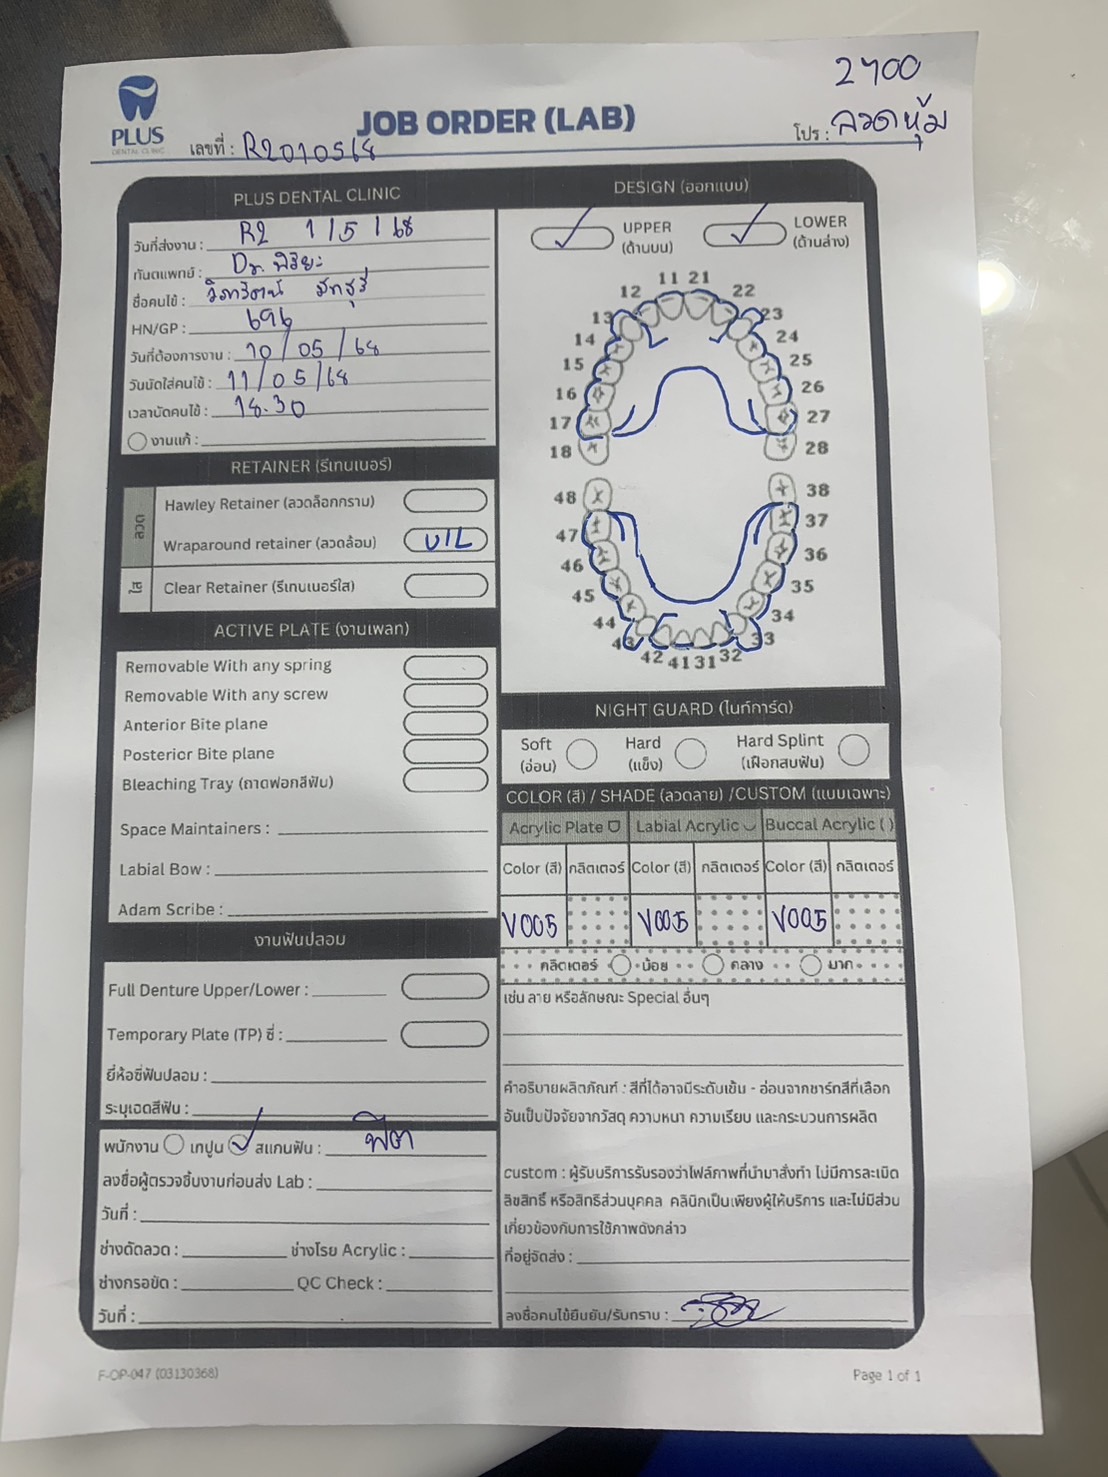 2400
ลวดหุ้ม
PLUS
DENTAL CLINIC
JOB ORDER (LAB)
เลขที่ : R2010568
โปร :
PLUS DENTAL CLINIC
วันที่ส่งงาน : R2 1/5/68
ทันตแพทย์ : Dr. พิริยะ
ชื่อคนไข้ :
HN/GP : 696
วันที่ต้องการงาน : 10/05/68
วันนัดใส่คนไข้ : 11/05/68
เวลานัดคนไข้ : 18.30
งานแก้ :
RETAINER (รีเทนเนอร์)
ลวด
Hawley Retainer (ลวดล็อกกราม)
Wraparound retainer (ลวดล้อม) U/L
ใส
Clear Retainer (รีเทนเนอร์ใส)
ACTIVE PLATE (งานเพลท)
Removable With any spring
Removable With any screw
Anterior Bite plane
Posterior Bite plane
Bleaching Tray (ถาดฟอกสีฟัน)
Space Maintainers :
Labial Bow :
Adam Scribe :
งานฟันปลอม
Full Denture Upper/Lower :
Temporary Plate (TP) ซี่ :
ยี่ห้อซี่ฟันปลอม :
ระบุเฉดสีฟัน :
พนักงาน เทปูน สแกนฟัน : ฟิตา
ลงชื่อผู้ตรวจชิ้นงานก่อนส่ง Lab :
วันที่ :
ช่างดัดลวด : ช่างโรย Acrylic :
ช่างกรอขัด : QC Check :
วันที่ :
DESIGN (ออกแบบ)
UPPER
(ด้านบน)
LOWER
(ด้านล่าง)
11 21
12 22
13 23
14 24
15 25
16 26
17 27
18 28
48 38
47 37
46 36
45 35
44 34
43 33
42 41 31 32
NIGHT GUARD (ไนท์การ์ด)
Soft
(อ่อน)
Hard
(แข็ง)
Hard Splint
(เฝือกสบฟัน)
COLOR (สี) / SHADE (ลวดลาย) /CUSTOM (แบบเฉพาะ)
Acrylic Plate Labial Acrylic Buccal Acrylic ( )
Color (สี) กลิตเตอร์ Color (สี) กลิตเตอร์ Color (สี) กลิตเตอร์
V005 V005 V005
กลิตเตอร์ น้อย กลาง มาก
เช่น ลาย หรือลักษณะ Special อื่นๆ
คำอธิบายผลิตภัณฑ์ : สีที่ได้อาจมีระดับเข้ม - อ่อนจากชาร์ทสีที่เลือก
อันเป็นปัจจัยจากวัสดุ ความหนา ความเรียบ และกระบวนการผลิต
custom : ผู้รับบริการรับรองว่าไฟล์ภาพที่นำมาสั่งทำ ไม่มีการละเมิด
ลิขสิทธิ์ หรือสิทธิส่วนบุคคล คลินิกเป็นเพียงผู้ให้บริการ และไม่มีส่วน
เกี่ยวข้องกับการใช้ภาพดังกล่าว
ที่อยู่จัดส่ง :
ลงชื่อคนไข้ยืนยัน/รับทราบ :
F-OP-047 (03130368)
Page 1 of 1